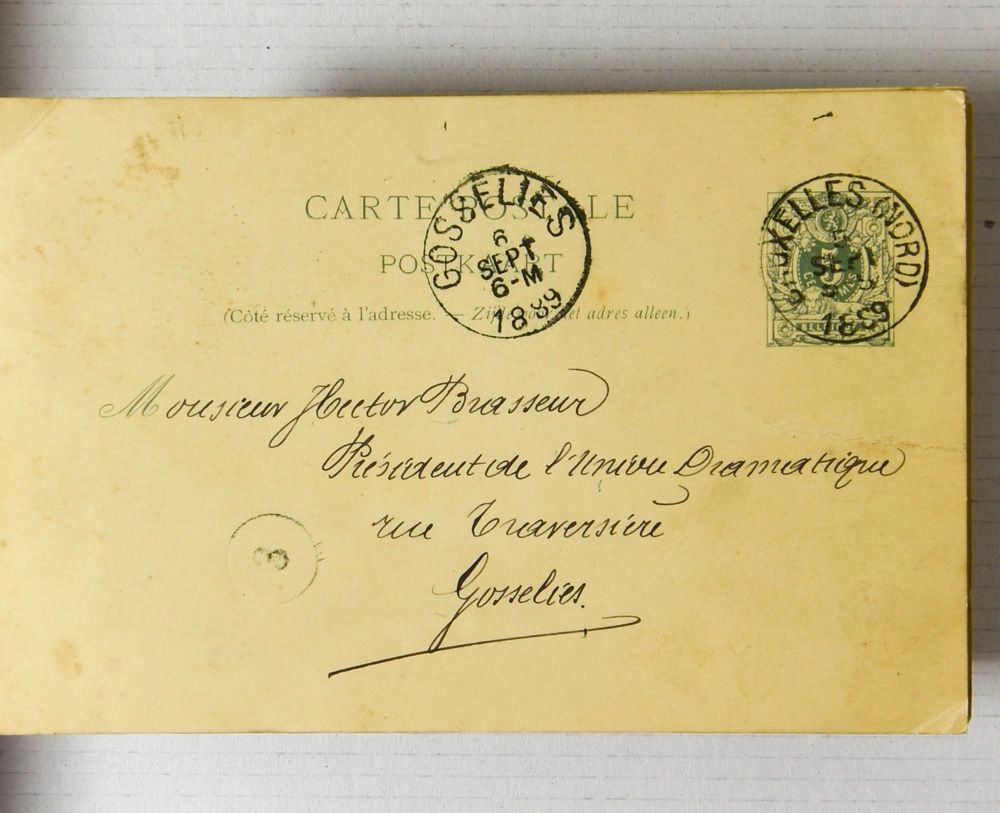 CARTE POSTALE
POSTKAART
(Côté réservé à l'adresse. — Zijde adres alleen.)
GOSSELIES
6
SEPT
6-M
1889
UXELLES (NORD)
5
SEPT
1889
5
BELGIQUE
Monsieur Hector Brasseur
Président de l'Union Dramatique
rue Traversière
Gosselies.
3